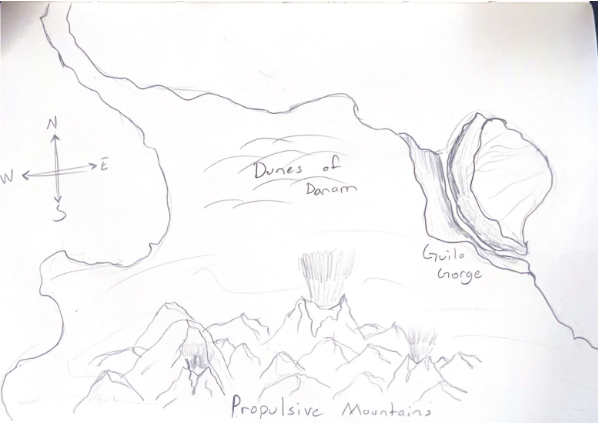 N
W E
S
Dunes of
Danam
Guilo
Gorge
Propulsive Mountains